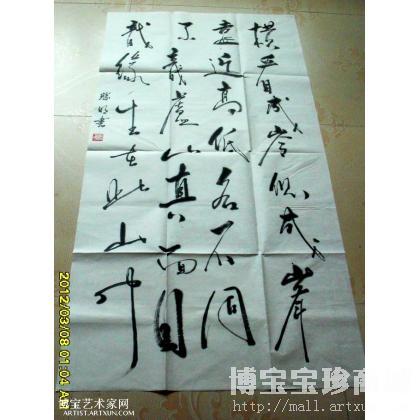 横看成岭侧成峰
远近高低各不同
不识庐山真面目
缘身在此山中
2012/03/08 01:04
博宝艺术家网
ARTIST.ARTXUN.COM
博宝宝珍商
http://mall.artxun